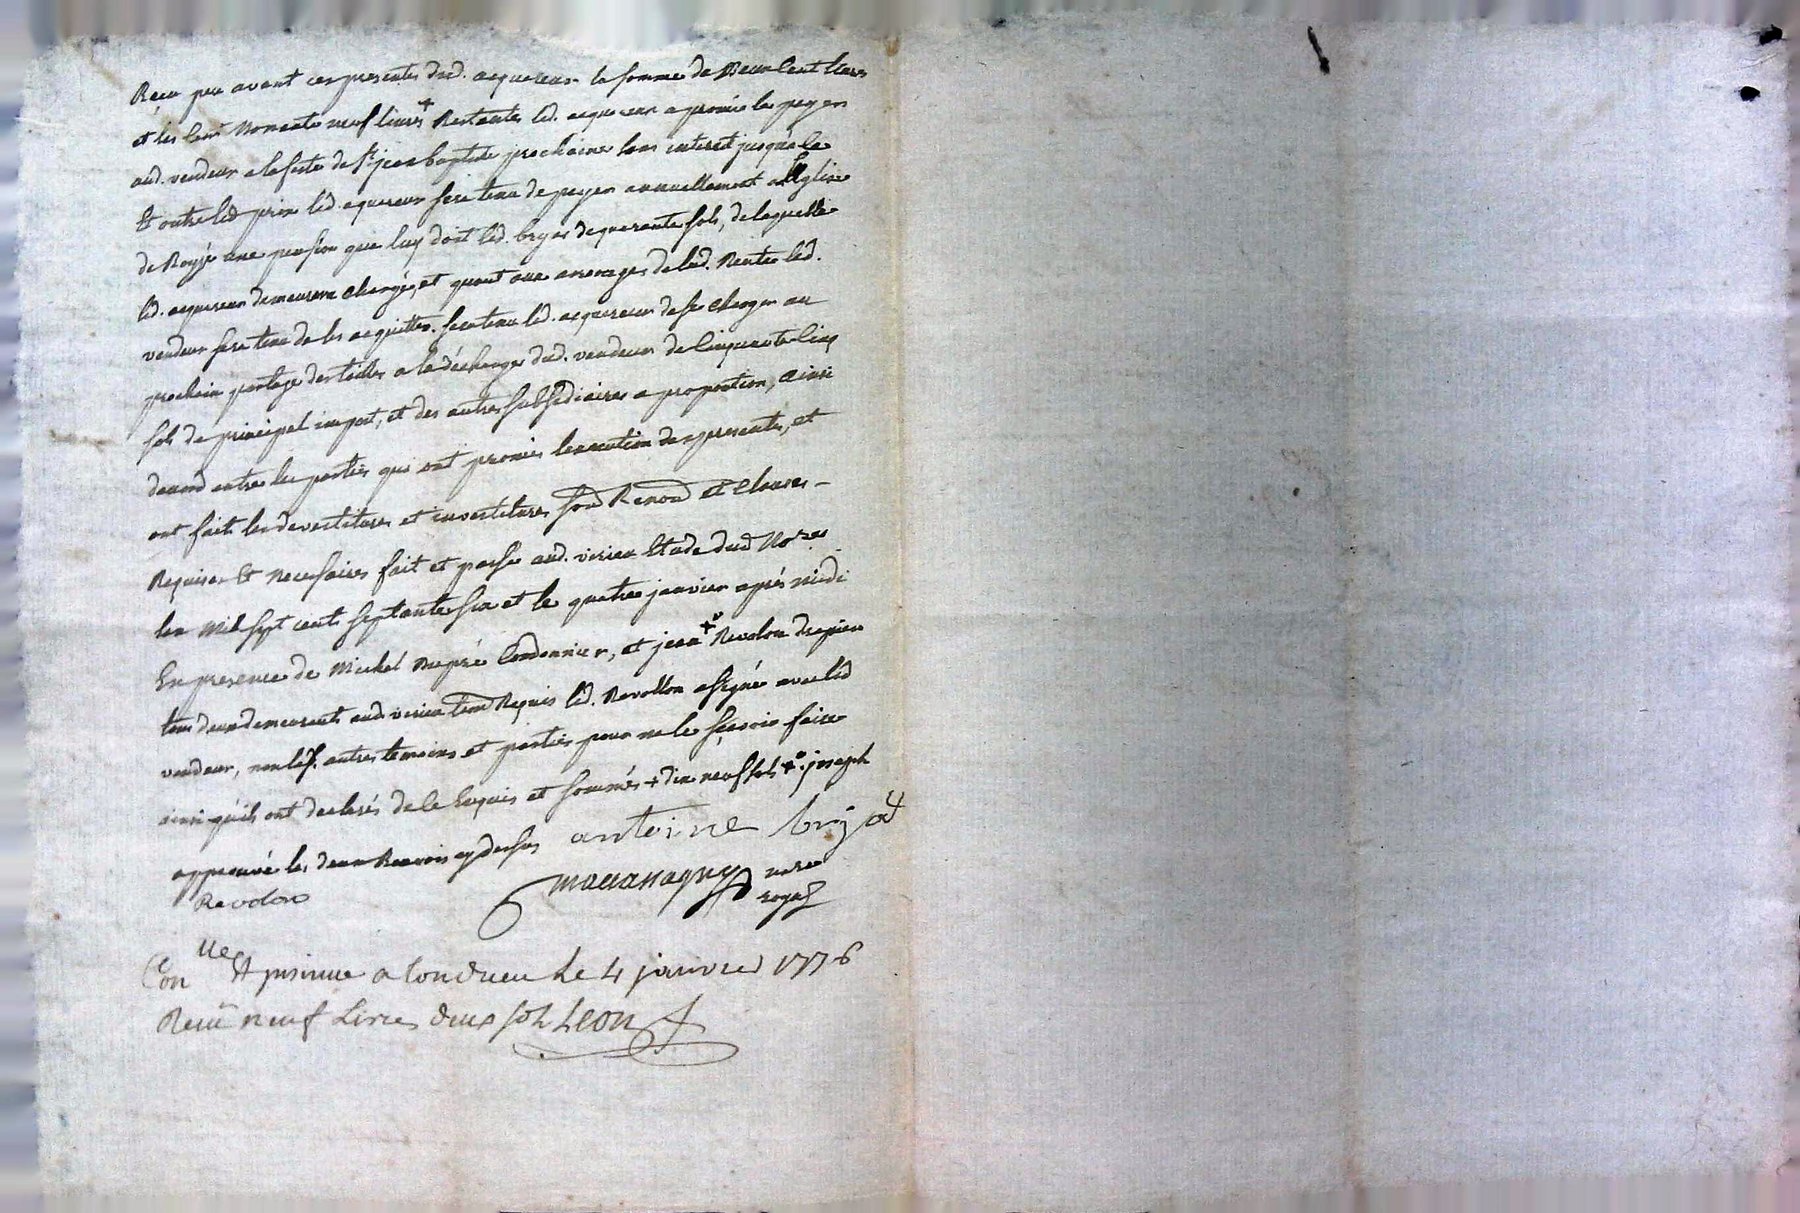 Reçu peu avant ces presentes dud. acquereur la somme de Deux Cent livres
et les Cent Nonente neuf livres + Restantes led. acquereur a promis la payer
aud. vendeur a la feste de St jean baptiste prochaine sans interest jusqu'a la
Et outre led prix led. aquereur sera tenu de payer annuellement a l'Eglise
de une pension que luy doit led. de quarante sols, de laquelle
led. acquereur demeurera chargé, et quant aux arrerages de lad. Rente led.
vendeur sera tenu de les acquitter. sera tenu led. acquereur de se charger au
prochain partage des tailles a la décharge dud. vendeur de Cinquante Cinq
sols de principal impost, et des autres subsidiaires a proportion, ainsi
convenu entre les parties qui ont promis l'execution des presentes, et
ont fait les devestitures et investitures sous Renond et clauses -
Requises Et necessaires fait et passé aud. virieu Etude dud No.re
l'an Mil sept cents septante six et le quatre janvier après midi
En presence de Michel Dupré Cordonnier, et jean +° Revolon drapier
tous deux demeurants aud. virieu tem. Requis led. Revollon a signé avec led
vendeur, non les autres temoins et parties pour ne le sçavoir faire
ainsi qu'ils ont declarés de ce Enquis et sommés + dix neuf sols +° joseph
approuvé les deux Renvois cy dessus antoine
Revolon notre
royal
Con lle Et insinué a Condrieu Le 4 janvier 1776
Reçu neuf Livres deux sols Leon